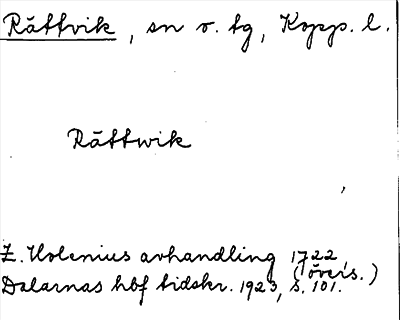 Rättvik, sn o. tg, Kopp. l.
Rättwik
Z. Holenius avhandling 1722,
(övers.)
Dalarnas hbf tidskr. 1923, s. 101.